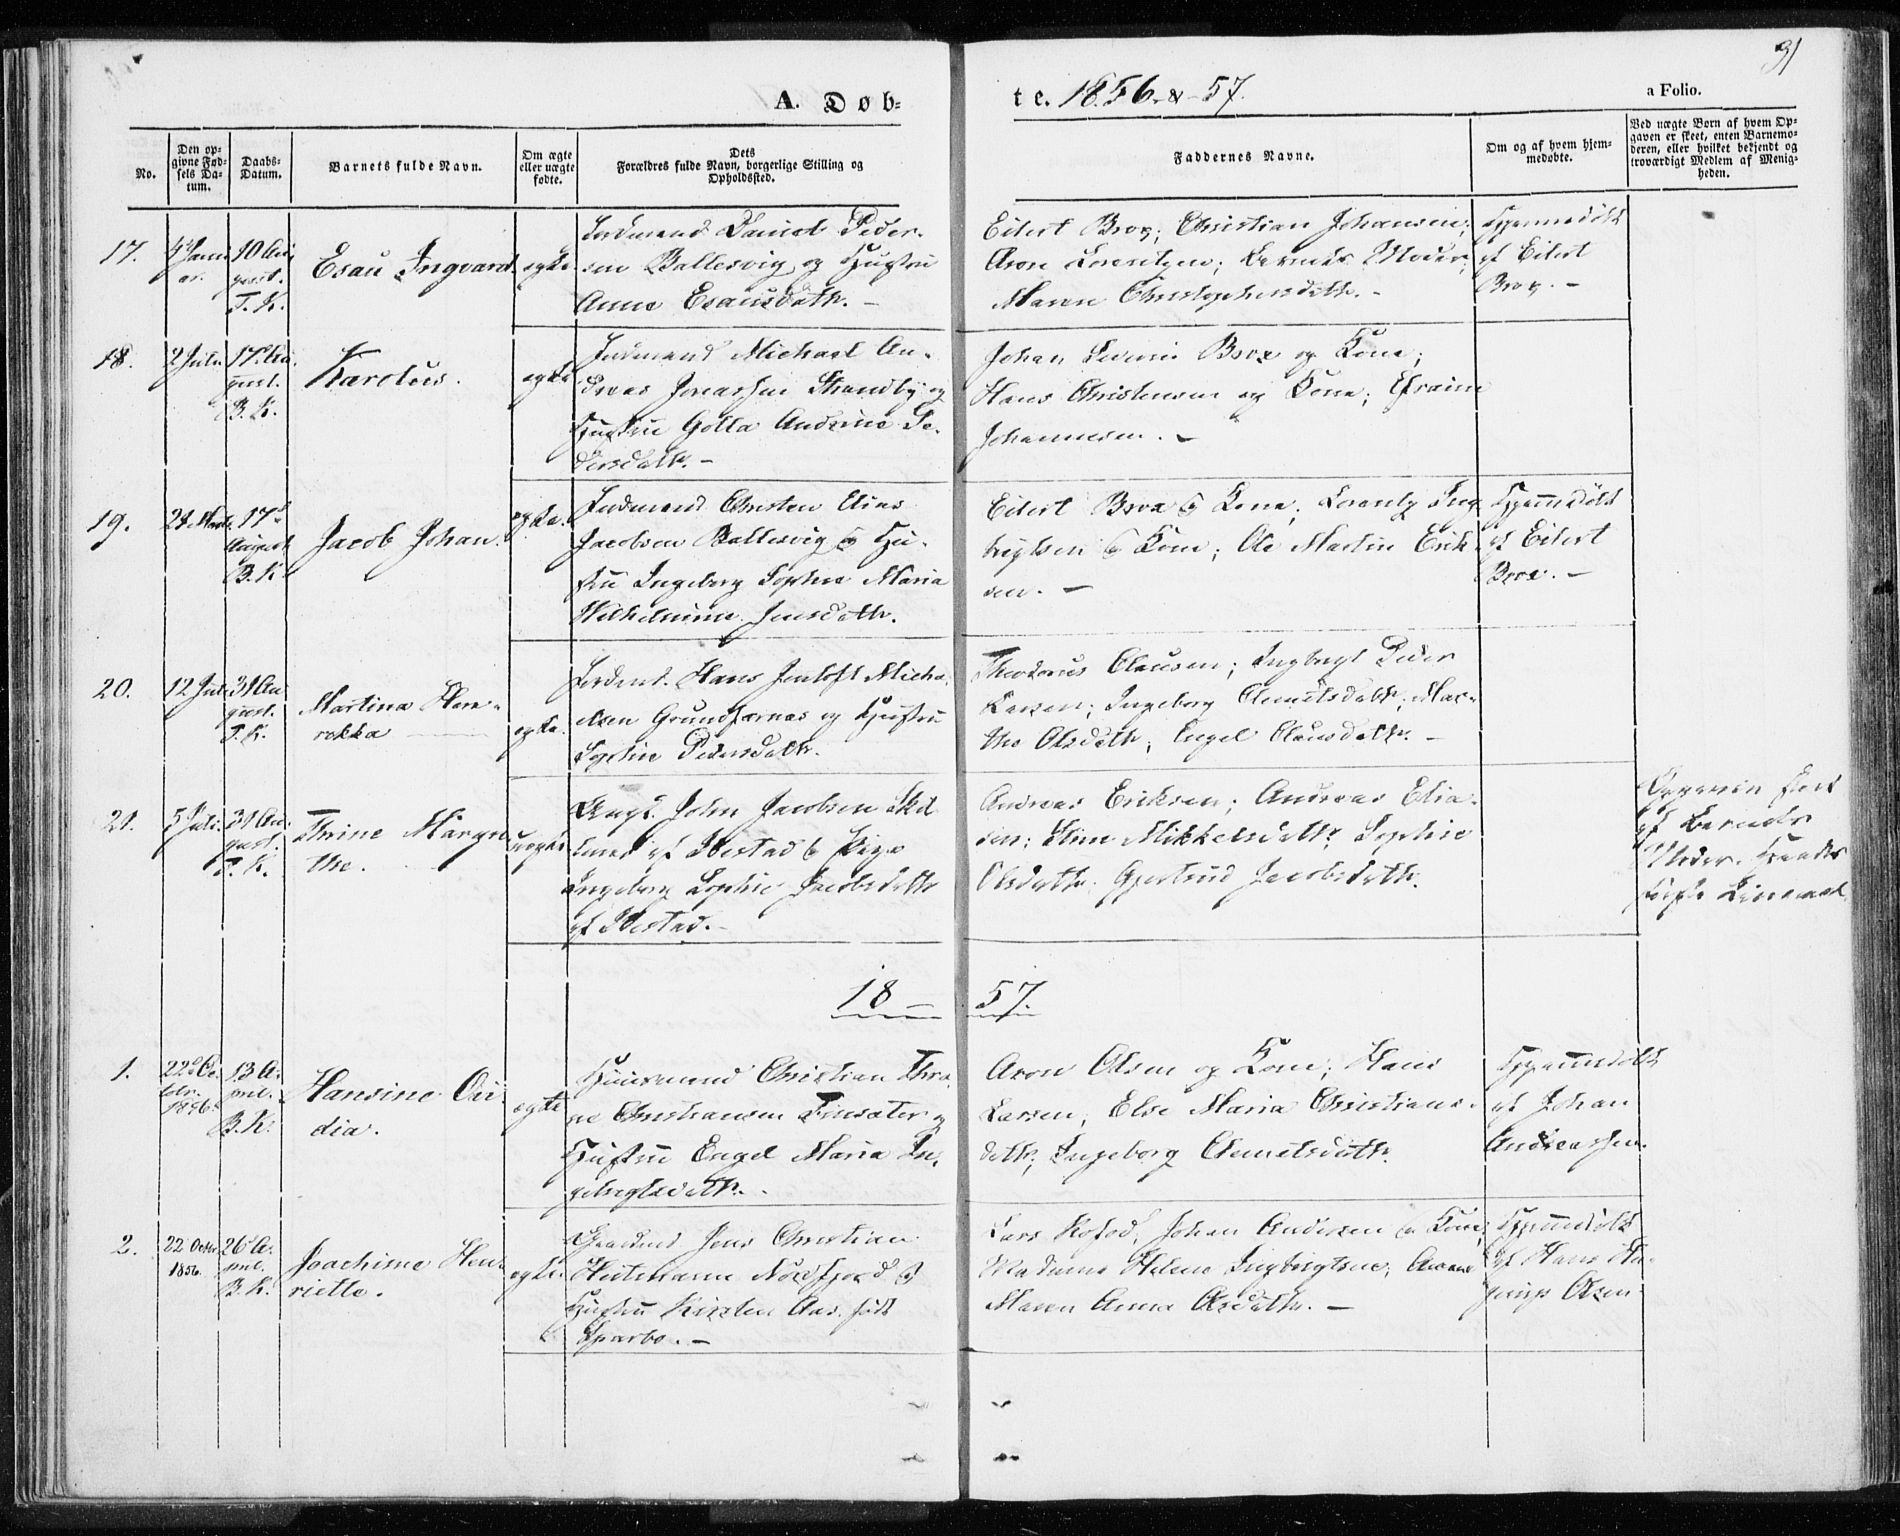 31
A. Døb-
te. 1856 & 57.
a Folio.
No.
Den op-
givne Fød-
sels Da-
tum.
Daabs-
Datum.
Barnets fulde Navn.
Om ægte
eller uægte
fødte.
Dets
Forældres fulde Navn, borgerlige Stilling og
Opholdssted.
Faddernes Navne.
Om og af hvem hjem-
medøbte.
Ved uægte Børn af hvem Op-
gaven er skeet, enten Barnemo-
deren, eller hvilket bekjendt og
troværdigt Medlem af Menig-
heden.
17.
4 Janu
ar.
10 Au
gust.
T. K.
Esau Ingvard
ægte
Indmand Daniel Peder-
sen Ballesvig og Hustru
Anne Esausdatr. -
Eilert Brox; Christian Johansen;
Aron Lorentzen; Barnets Moder;
Maren Christophersdatr. -
Hjemmedøbt
af Eilert
Brox. -
18.
2 Juli
17 Au
gust.
B. K.
Karolus.
ægte
Indmand Michael An-
dreas Jonassen Strandby og
Hustru Golla Andrine Pe-
dersdatr. -
Johan Severin Brox og Kone;
Hans Christensen og Kone; Efraim
Johannesen. -
19.
24 Marts
17d
August
B. K.
Jacob Johan.
ægte.
Indmand Christen Elias
Jacobsen Ballesvig & Hu-
stru Ingeborg Sophie Maria
Wilhelmine Jensdatr.
Eilert Brox & Kone; Lorentz Ing-
brigtsen & Kone; Ole Martin Erik-
sen. -
Hjemmedøbt
af Eilert
Brox. -
20.
12 Juli
31 Au
gust.
T. K.
Martina Hen-
rekka
ægte.
Indmd. Hans Jentoft Micha-
elsen Grundfarnæs og Hustru
Sophie Pedersdatr.
Theodorus Clausen; Ingbrigt Peder
Larsen; Ingeborg Clemetsdatr; Mar-
the Olsdatr; Engel Clausdatr. -
21.
5 Juli.
31 Au-
gust.
T. K.
Thrine Margre
the.
uægte
Ungk. John Jacobsen
af Ibestad & Pige
Ingeborg Sophie Jacobsdatr
af Ibestad. -
Andreas Eriksen; Andreas Elia-
sen; Stine Mikkelsdatr; Sophie
Olsdatr; Gjertrud Jacobsdatr.
Opgaven skeet
af Barnets
Moder.
18 - 57.
1.
22d Oc-
tobr.
1856.
13 A-
pril.
B. K.
Hansine Ovi
dia.
ægte
Huusmand Christian Thra-
ne Christiansen Finsæter og
Hustru Engel Maria In-
gebrigtsdatr. -
Aron Olsen og Kone; Hans
Larsen; Else Maria Christians-
datr; Ingeborg Clemetsdatr.
Hjemmedøbt
af Johan
Andreassen.
2.
22 Octbr
1856.
26 A-
pril.
B. K.
Joachime Hen-
riette.
ægte.
Gaardmd Jens Christian
Heitmann Nordfjord &
Hustru Kirsten Aas. født
Sparbo. -
Lars Kofod; Johan Andersen & Kone;
Madame Helene Ingbrigtsen;
Maren Anna Olsdatr. -
Hjemmedøbt
af Hans Ha-
Olsen.